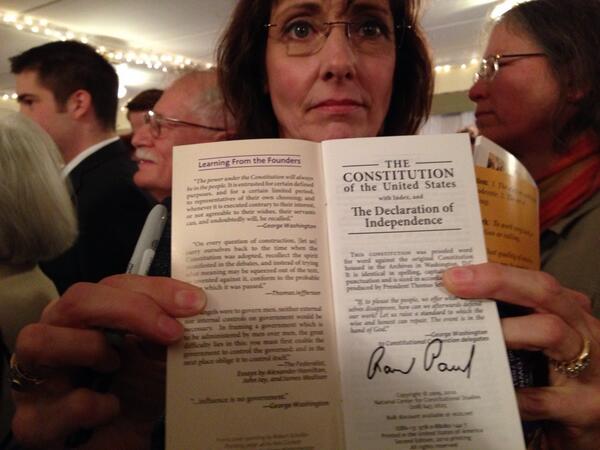 Learning From the Founders
"The power under the Constitution will always
be in the people. It is entrusted for certain defined
purposes, and for a certain limited period,
to representatives of their own choosing; and
whenever it is executed contrary to their interest,
or not agreeable to their wishes, their servants
can, and undoubtedly will, be recalled."
—George Washington
"On every question of construction, [let us]
carry ourselves back to the time when the
Constitution was adopted, recollect the spirit
manifested in the debates, and instead of trying
what meaning may be squeezed out of the text,
invented against it, conform to the probable
one in which it was passed."
—Thomas Jefferson
angels were to govern men, neither external
nor internal controls on government would be
necessary. In framing a government which is
to be administered by men over men, the great
difficulty lies in this: you must first enable the
government to control the governed; and in the
next place oblige it to control itself."
—The Federalist,
Essays by Alexander Hamilton,
John Jay, and James Madison
influence is no government."
—George Washington
THE
CONSTITUTION
of the United States
with Index, and
The Declaration of
Independence
THIS CONSTITUTION was proofed word
for word against the original Constitution
housed in the Archives in Washington,
It is identical in spelling,
punctuation and is sized in
produced by President Thomas
"If, to please the people, we offer what
ourselves disapprove, how can we afterwards defend
our work? Let us raise a standard to which the
wise and honest can repair. The event is in the
hand of God."
—George Washington
to Constitutional Convention delegates
Ron Paul
Copyright © 2005, 2010
National Center for Constitutional Studies
Printed in the United States of America
Second Edition, 2010 printing
All rights reserved